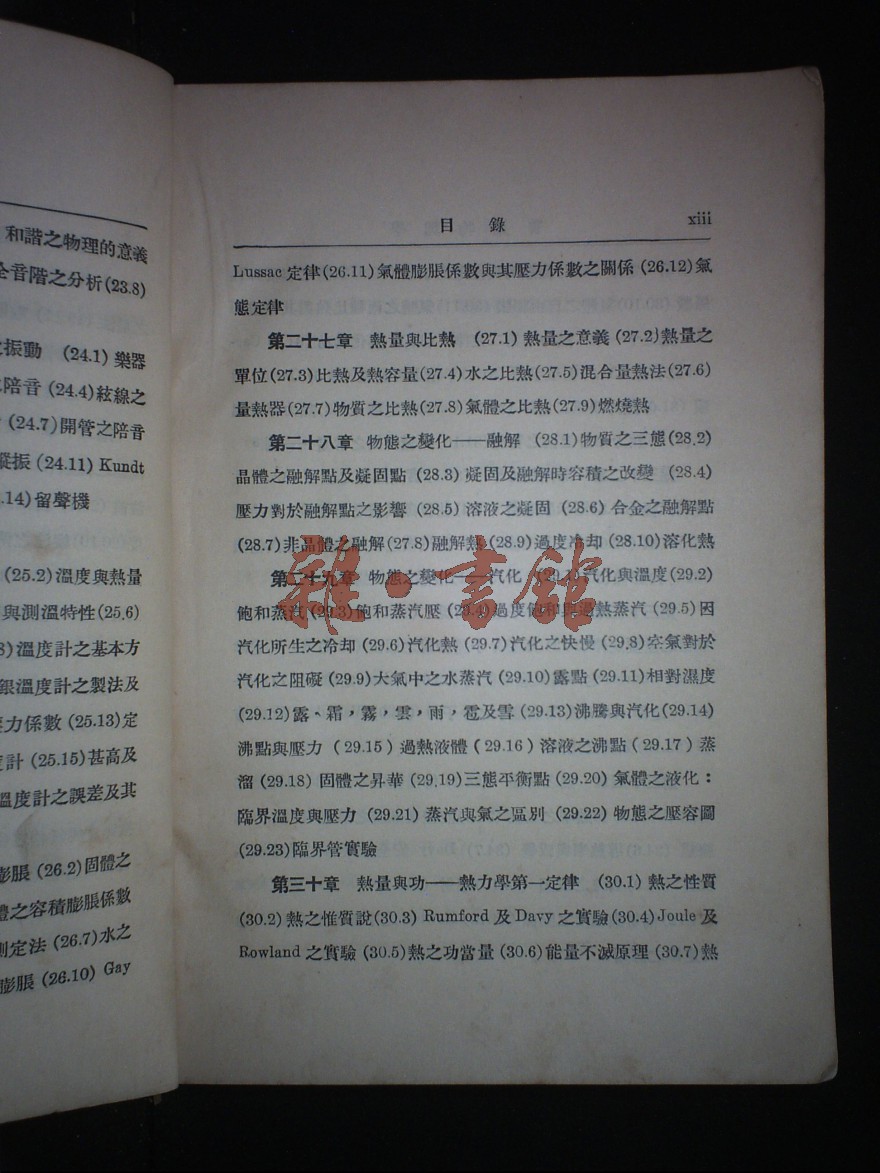 和諧之物理的意義
全音階之分析(23.8)
振動 (24.1) 樂器
陪音 (24.4)絃線之
(24.7)開管之陪音
振 (24.11) Kundt
.14)留聲機
(25.2)溫度與熱量
與測溫特性(25.6)
)溫度計之基本方
銀溫度計之製法及
力係數 (25.13)定
計 (25.15)甚高及
溫度計之誤差及其
膨脹 (26.2)固體之
體之容積膨脹係數
測定法 (26.7)水之
膨脹 (26.10) Gay
目 錄 xiii
Lussac 定律(26.11)氣體膨脹係數與其壓力係數之關係 (26.12)氣
態定律
第二十七章 熱量與比熱 (27.1) 熱量之意義(27.2)熱量之
單位(27.3)比熱及熱容量(27.4)水之比熱(27.5)混合量熱法(27.6)
量熱器(27.7)物質之比熱(27.8)氣體之比熱(27.9)燃燒熱
第二十八章 物態之變化——融解 (28.1)物質之三態(28.2)
晶體之融解點及凝固點 (28.3) 凝固及融解時容積之改變 (28.4)
壓力對於融解點之影響 (28.5) 溶液之凝固 (28.6) 合金之融解點
(28.7)非晶體之融解(27.8)融解熱(28.9)過度冷却 (28.10)溶化熱
第二十九章 物態之變化——汽化 (29.1)汽化與溫度(29.2)
飽和蒸汽 (29.3)飽和蒸汽壓 (29.4)過度飽和與過熱蒸汽 (29.5) 因
汽化所生之冷却 (29.6)汽化熱 (29.7)汽化之快慢 (29.8)空氣對於
汽化之阻礙 (29.9)大氣中之水蒸汽 (29.10)露點 (29.11)相對濕度
(29.12)露、霜，霧，雲，雨，雹及雪 (29.13)沸騰與汽化(29.14)
沸點與壓力 (29.15) 過熱液體 (29.16) 溶液之沸點 (29.17) 蒸
溜 (29.18) 固體之昇華 (29.19)三態平衡點 (29.20) 氣體之液化：
臨界溫度與壓力 (29.21) 蒸汽與氣之區別 (29.22) 物態之壓容圖
(29.23)臨界管實驗
第三十章 熱量與功——熱力學第一定律 (30.1) 熱之性質
(30.2)熱之惟質說(30.3) Rumford 及 Davy 之實驗(30.4)Joule 及
Rowland 之實驗 (30.5)熱之功當量 (30.6)能量不滅原理 (30.7)熱
雜·書館